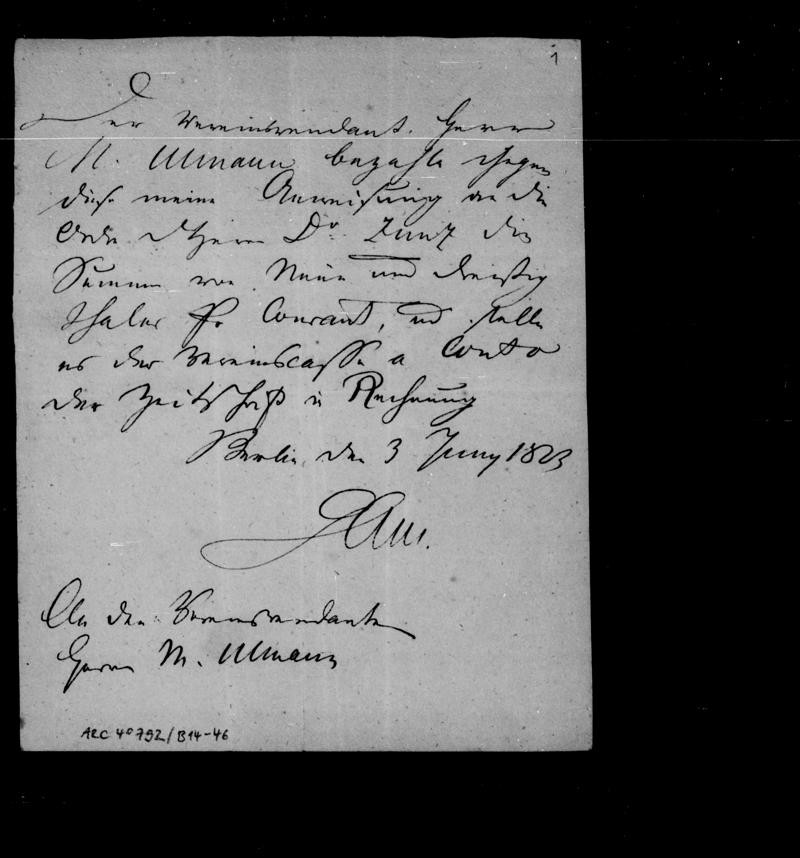 1
Der Vereinsrendant, Herr
M. Ulmann bezahle gegen
diese meine Anweisung an die
Ordre des Herrn Dr. Zunz die
Summe von Neun und dreißig
Thaler Pr Courant, und stelle
es der Vereinscasse a Conto
der Zeitschrift in Rechnung
Berlin, den 3 Juny 1823
Gans.
An den Vereinsrendanten
Herrn M. Ulmann
ARC 4° 792/B14-46